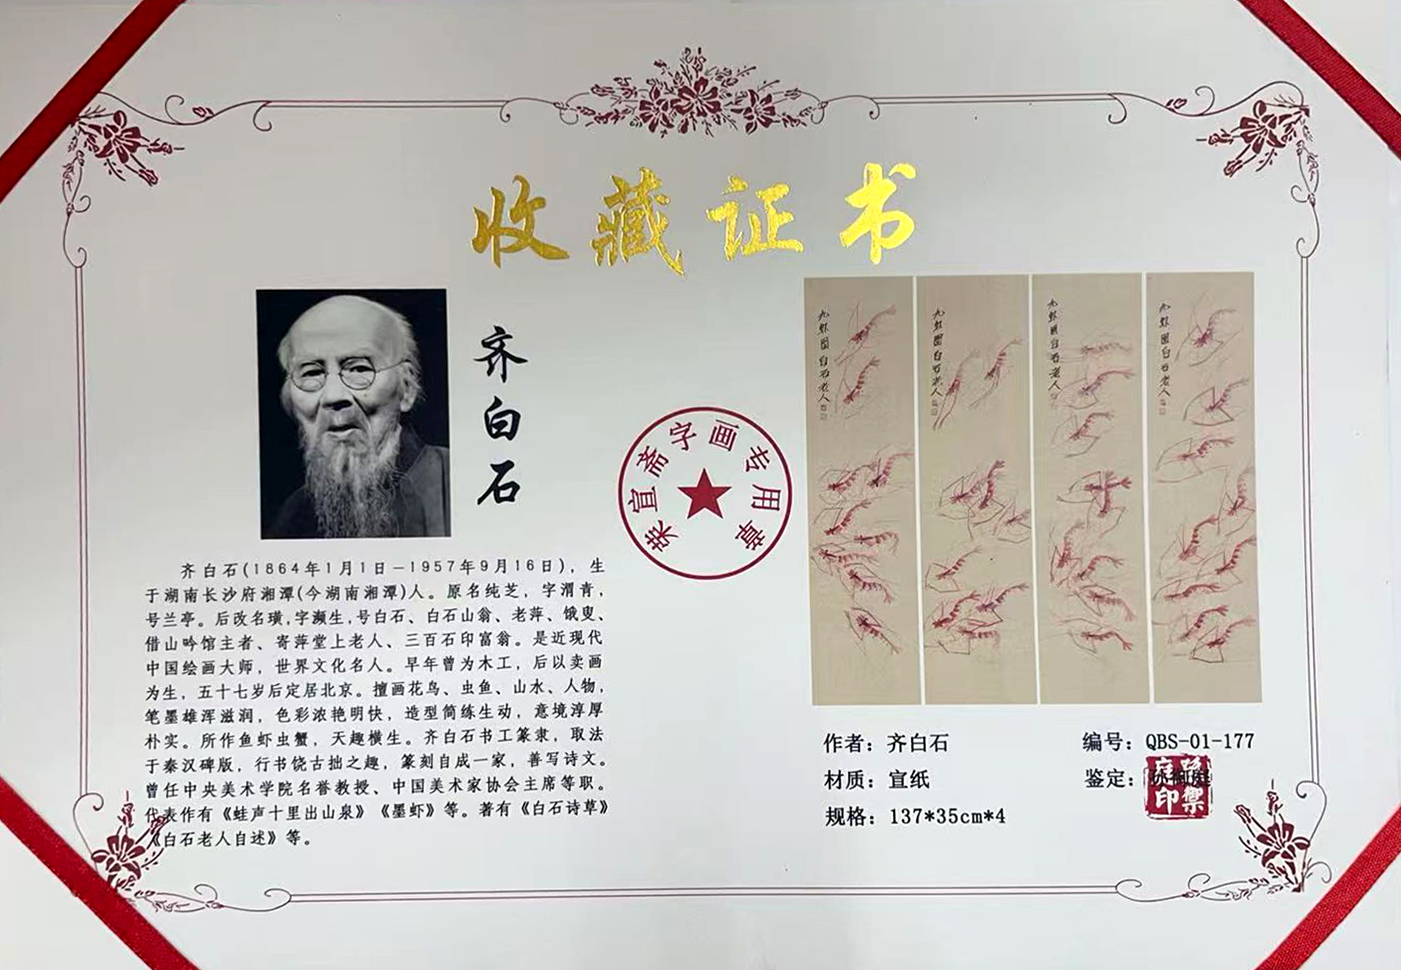 收藏证书
齐白石
荣宣斋字画专用章
齐白石(1864年1月1日－1957年9月16日)，生
于湖南长沙府湘潭(今湖南湘潭)人。原名纯芝，字渭青，
号兰亭。后改名璜,字濒生,号白石、白石山翁、老萍、饿叟、
借山吟馆主者、寄萍堂上老人、三百石印富翁。是近现代
中国绘画大师，世界文化名人。早年曾为木工，后以卖画
为生，五十七岁后定居北京。擅画花鸟、虫鱼、山水、人物，
笔墨雄浑滋润，色彩浓艳明快，造型简练生动，意境淳厚
朴实。所作鱼虾虫蟹，天趣横生。齐白石书工篆隶，取法
于秦汉碑版，行书饶古拙之趣，篆刻自成一家，善写诗文。
曾任中央美术学院名誉教授、中国美术家协会主席等职。
代表作有《蛙声十里出山泉》《墨虾》等。著有《白石诗草》
《白石老人自述》等。
白石老人
白石老人
白石老人
白石老人
作者：齐白石
材质：宣纸
规格：137*35cm*4
编号：QBS-01-177
鉴定：